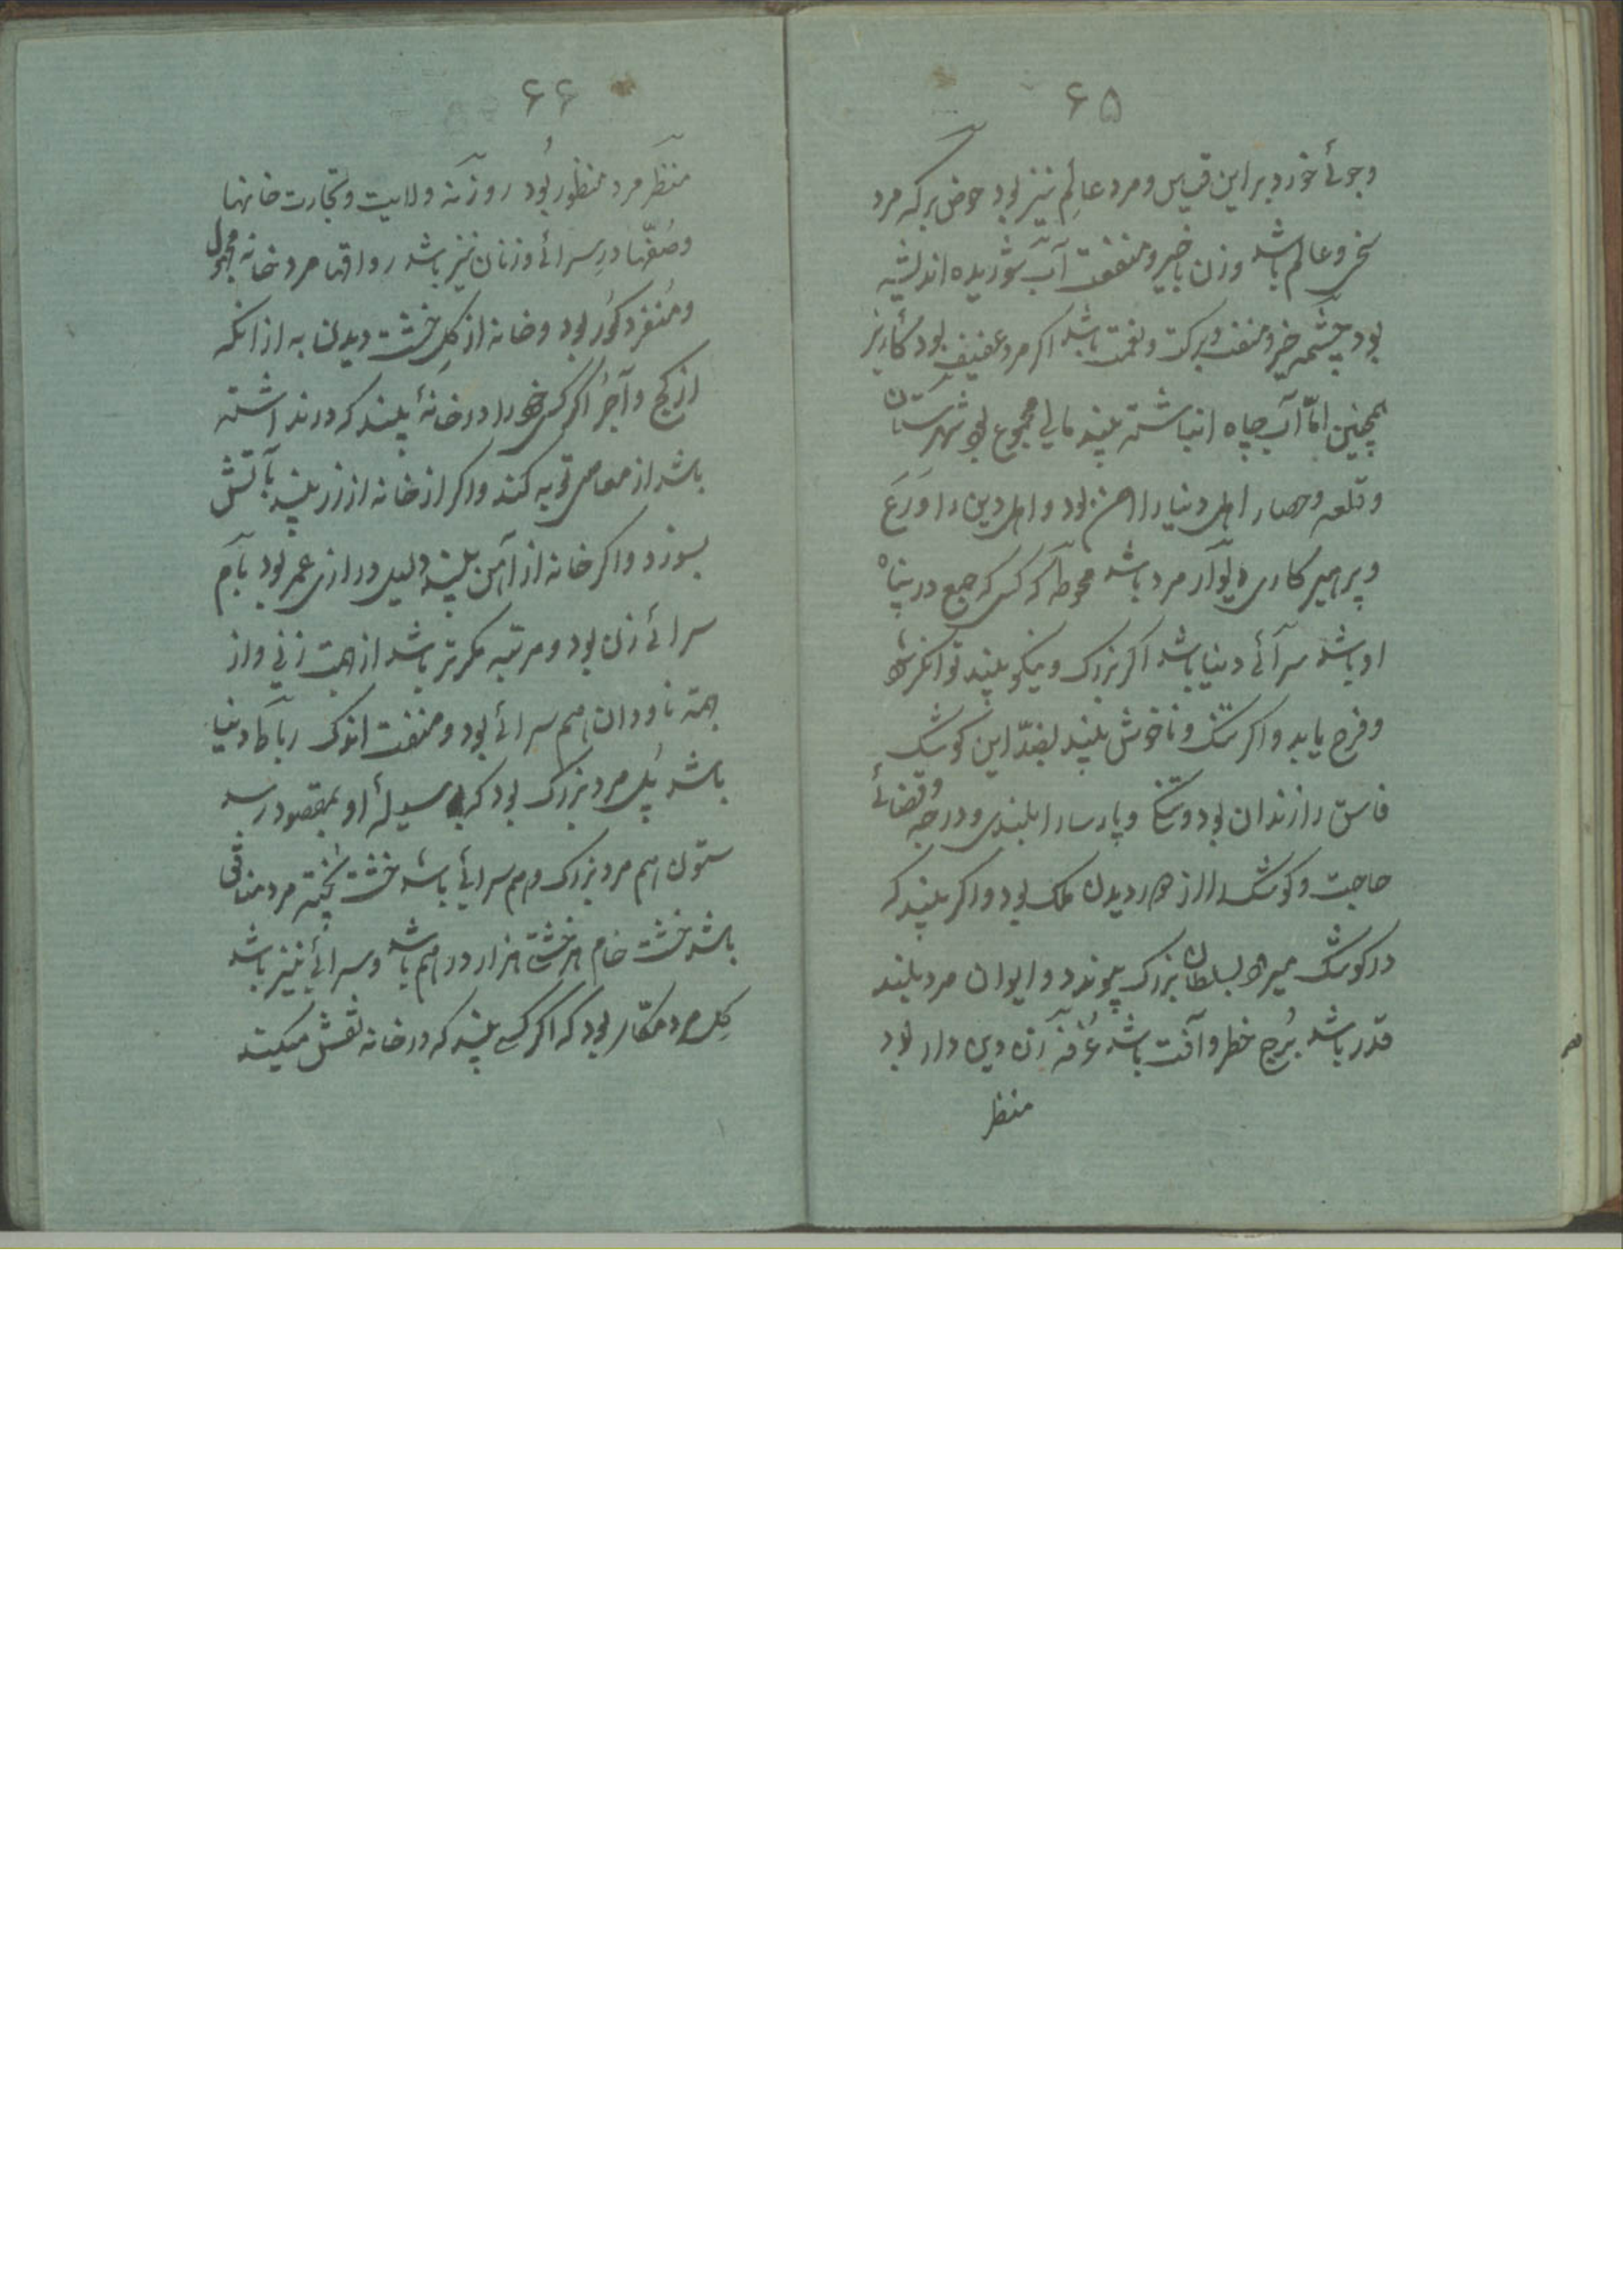 ۶۵
وجوئے خورد برین قیاس و مرد عالِم نیز بود حوض برکہ مرد
سخی و عالم باشد وزن با خیر و منفعت آب شوریدہ اندیشہ
بود چشمہ خیر و منفعت و برکت و نعمت باشد اکر مرد عفیف بود کاریز
ہمچنین امّا آب چاہ انباشتہ بیند مالی مجموع بود شہرستان
و قلعہ و حصار اہل دنیا را امن بود و اہل دین را ورَع
و پرہیزکاری دیوار مرد باشد محوطہ کسی کہ جمع در پناہ
او باشد سرآئے دنیا باشد اکر بزرک و نیکو بیند توانکر شود
و فرح یابد و اکر تنک و ناخوش بیند بضدّ این کوشک
فاسق را زندان بود و تنکی و پارسا را بلندی و درجہ و قضائے
حاجت و کوشک را از دور دیدن ملک بود و اکر بیند کہ
در کوشک میرود بسلطان بزرک پیوندد و ایوان مرد بلند
قدر باشد بُرج خطر و آفت باشد غُرفہ زن دین دار بود
منظر
۶۶
منظر مرد منظور بُود روزنہ ولایت و تجارت خانہا
و صُفّہا در سرائے و زنان نیز باشد رواقہا مرد خانہ مجہول
و مُنفرد کُور بود و خانہ از کِل خشت دیدن بہ از انکہ
از کچ و آجُر اکر کسی خود را در خانۂ بیند کہ در بند اشتہ
باشد از معاصی توبہ کند و اکر از خانہ از زر بیند بآتش
بسوزد و اکر خانہ از آہن بیند دلیل درازی عمر بود بآم
سرائے زن بود و مرتبہ مکرتر باشد از جہت زنی و از
جہتہ ناودان ہم سرائے بود و منفعت اندک رباط دنیا
باشد پُل مرد بزرک بود کہ بوسیلۂ او بمقصود رسد
ستون ہم مرد بزرک و ہم سرائے باشد خشت پختہ مرد منافق
باشد خشت خام ہر خشتی ہزار درہم باشد و سرائے نیز باشد
کِل مرد مکّار بود کہ اکر کسے بیند کہ در خانہ نقش میکند